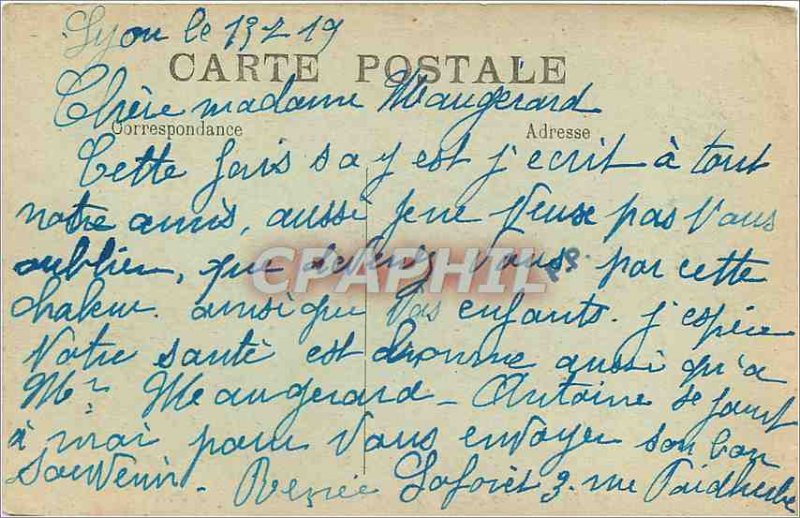 Lyon le 13 7 19
CARTE POSTALE
Chère madame Maugerard
Correspondance
Adresse
Cette fois s a y est j'ecrit à tout
notre amis, aussi je ne veux pas vous
oublier, que devenez vous par cette
chaleur. ainsi que vos enfants. j'espère
votre santé est bonne aussi qu'a
Mr Meaugerard - Antoine se joint
à moi pour vous envoyer son bon
souvenir. Renée Laforêt 3. rue Faidherbe
CPAPHIL